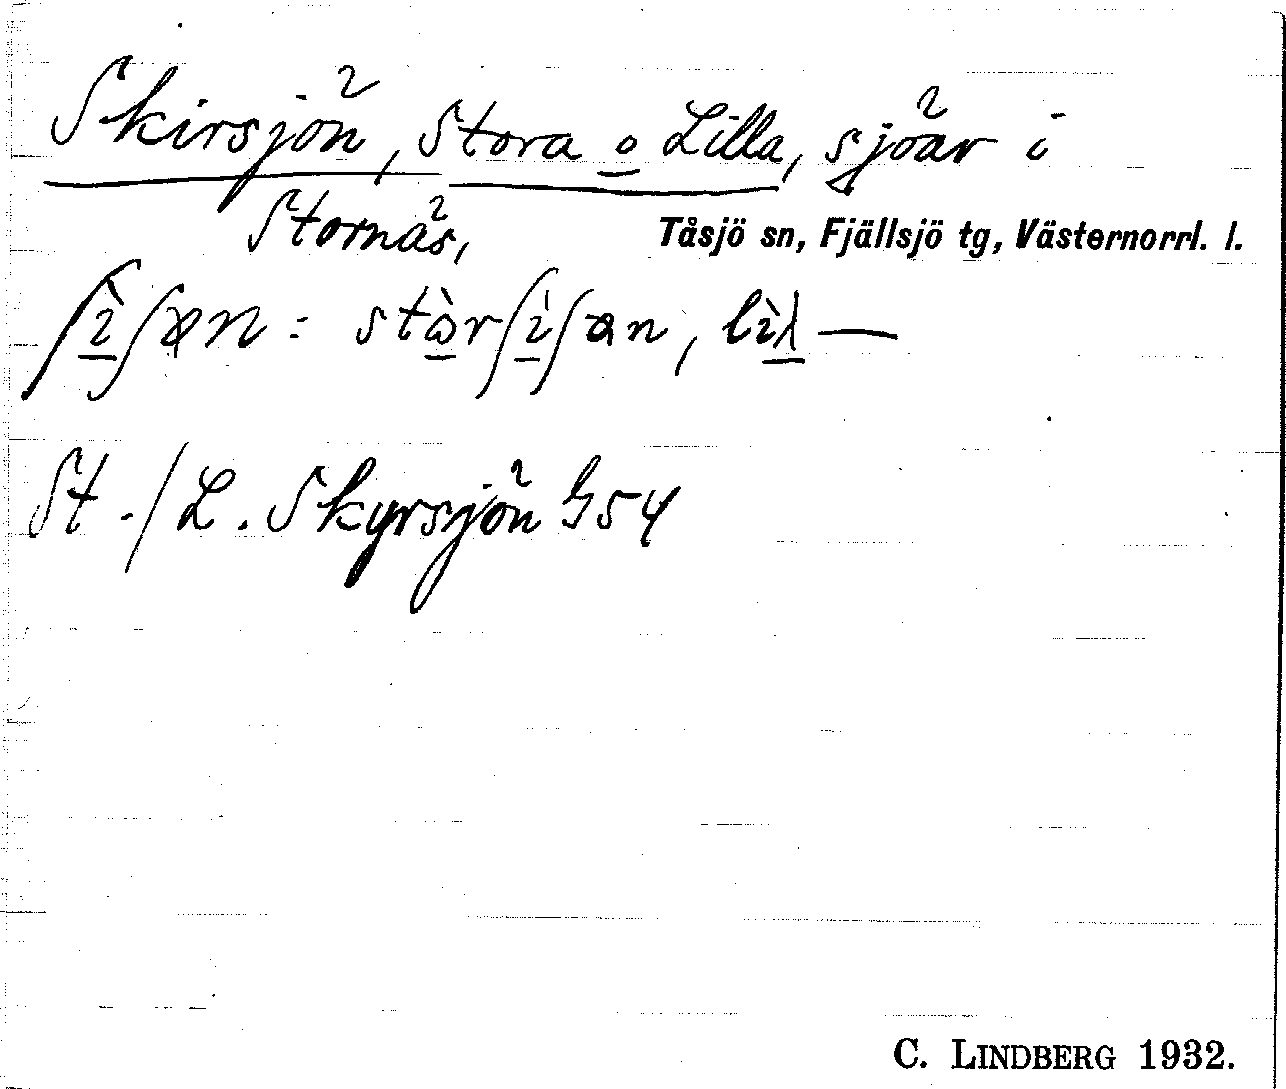 Skirsjön, Stora o Lilla, sjöar i
Stornäs, Tåsjö sn, Fjällsjö tg, Västernorrl. l.
ʃìʃan : stòrʃìʃan, lìl —
St./L. Skyrsjön G54
C. LINDBERG 1932.